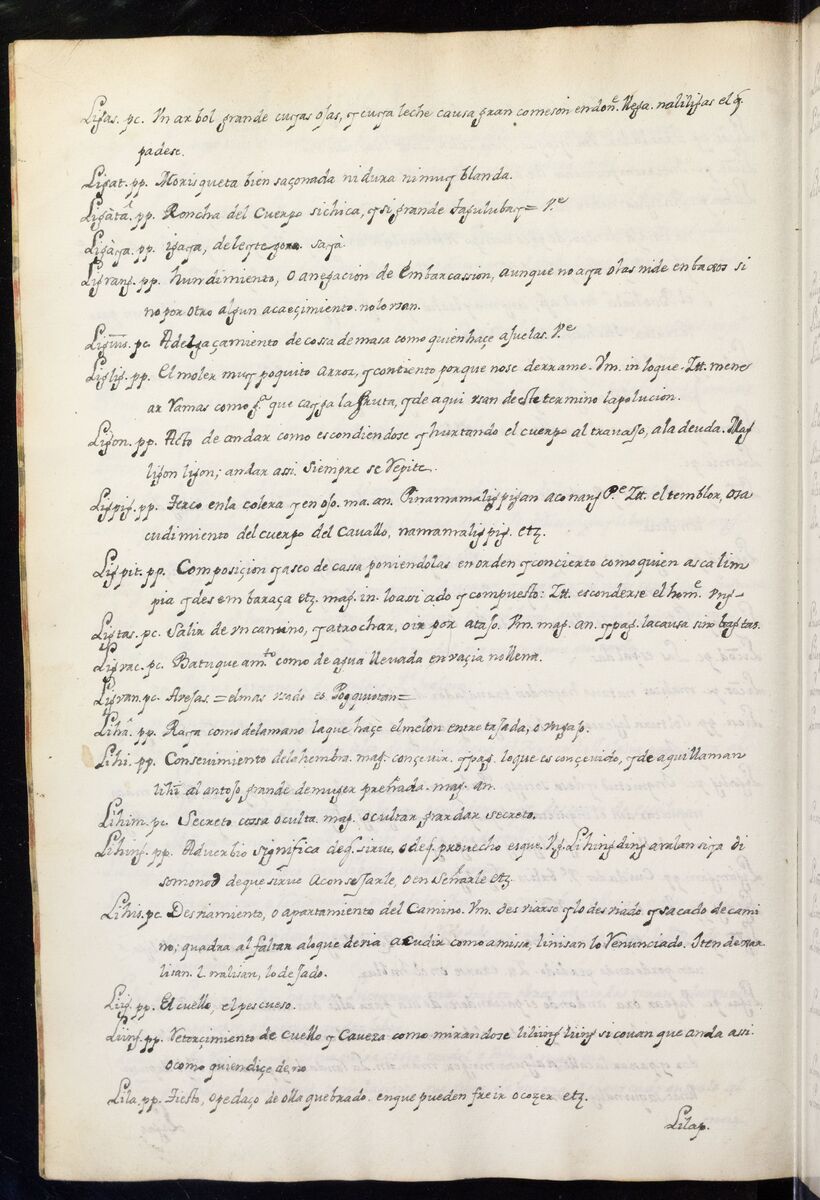 Ligas. pc. Vn arbol grande cuyas ojas, y cuya leche causa gran comeson en donͤ. llega. naliligas el q̃
padese.
Ligat. pp. Morisqueta bien saçonada ni dura ni muy blanda.
Ligàtâ. pp. Roncha del cuerpo si chica, y si grande tagulubay = Vᵉ
Ligàya. pp. igaya, deleyte gozo. sayà.
Ligrang. pp. hundimiento, o anegacion de embarcassion, aunque no aya olas ni de en baxos si
no por otro algun acaeçimiento. no lo vsan.
pc. Adelgaçamiento de cossa de masa como quien haçe ajuelas. Vᵉ
Liglig. pp. El moler muy poquito arroz, y con tiento porque no se derrame. Vm. in loque. Itt. mene
ar Ramas como pᵃ. que cayga la fruta, y de aqui vsan de este termino la polucion.
Ligon. pp. Acto de andar como escondiendose y hurtando el cuerpo al travajo, a la deuda. Mag
ligon ligon; andar assi. siempre se Repite.
Ligpig. pp. Terco en la colera y enojo. ma. an. Pinamamaligpigan aco nang Pᵉ Itt. el temblor, o sa
cudimiento del cuerpo del Cavallo, namamaligpig. etz.
Ligpit. pp. Composiçion y asco de cassa poniendolas en orden y conçierto como quien asca lim
pia y desembaraça etz. mag. in. lo assi ado y compuesto: Itt. esconderse el homͤ. vng-
Ligtas. pc. Salir de vn camino, y atrochar, o ir por atajo. Vm. mag. an. y pag. la causa sino bagtas.
Ligvac. pc. Batuqueamᵗᵒ como de agua llevada en vaçia no llena.
Ligvan. pc. Avejas. = el mas vsado es Pogquiotan =
Lihâ. pp. Raya como de la mano la que haçe el melon entre tajada, o vn gajo.
Lihî. pp. Consevimiento de la hembra. mag. conçevir. y pag. lo que es conçevido, y de aqui llaman
lihĩ al antojo grande de muger preñada. mag. an.
Lihim. pc. Secreto cossa oculta. mag. ocultar guardar secreto.
Lihing. pp. Adverbio significa de q. sirve, o de q. provecho es que. Vg. Lihing ding aralan siya di
somonod de que sirve aconsejarle, o enseñarle etz.
Lihis. pc. Desviamiento, o apartamiento del Camino. Vm. desviarse y lo desviado y sacado de cami
no; quadra al faltar a lo que devia acudir como a missa, linisan lo Renunciado. Iten de var
lisan. l. malisan, lo dejado.
Liig. pp. El cuello, el pescueso.
Liing. pp. Retorçimiento de cuello y Caveza como mirandose liliing liing si couan que anda assi
o como quien diçe de no
Lila. pp. Tiesto, o pedaço de olla quebrado. en que pueden freir o cozer etz.
Lilap.